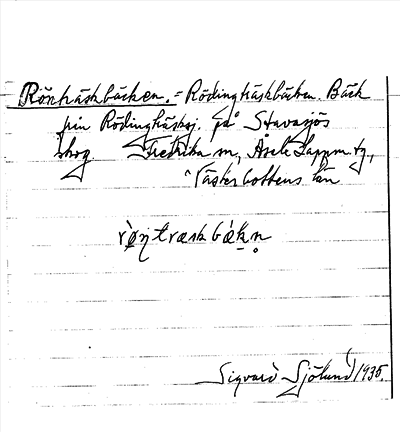 Rönträskbäcken. = Rödingträskbäcken. Bäck
från Rödingträskej. på Stavasjös
skog Fredrika sn, Åsele Lappm. tg,
Västerbottens län
rø̀ŋtræskbæ̀kn̥
Sigvard Sjölund 1935.